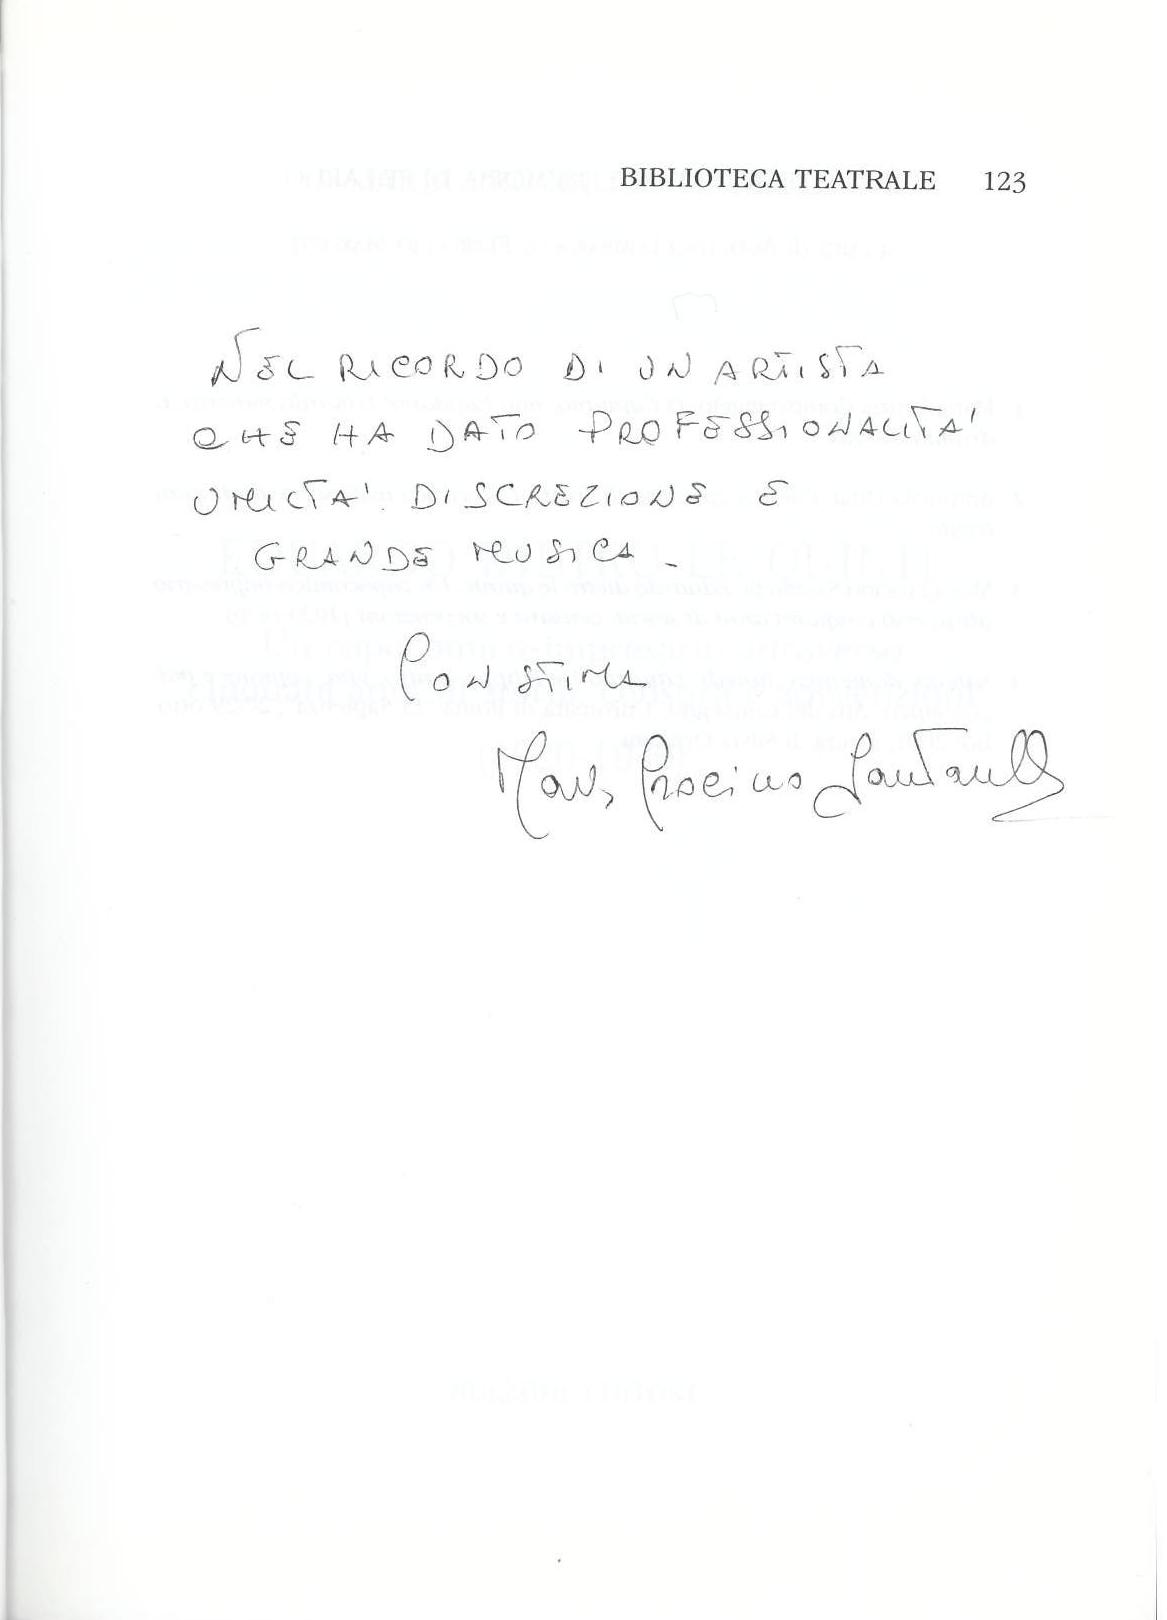 BIBLIOTECA TEATRALE 123
NEL RICORDO DI UN ARTISTA
CHE HA DATO PROFESSIONALITA'
UMILTA' DISCREZIONE E
GRANDE MUSICA -
CON STIMA
Procino Santarella